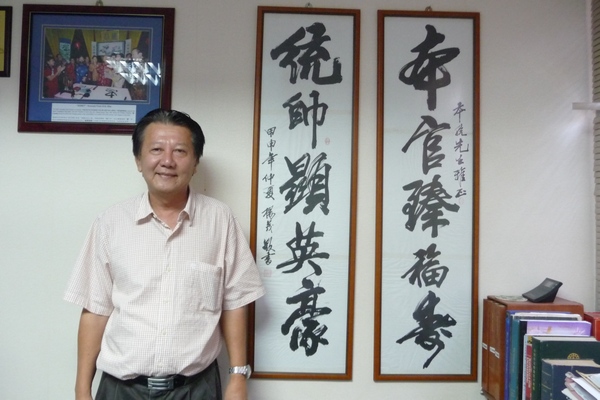 本官臻福壽
本統先生雅正
統帥顯英豪
甲申年仲夏 書